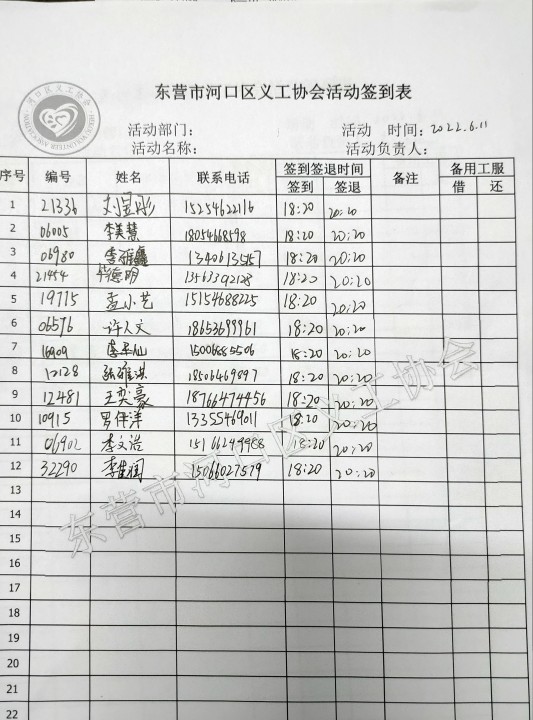 河口区义工协会
HEKOU VOLUNTEER ASSOCIATION
东营市河口区义工协会活动签到表
活动部门： 活动 时间：2022.6.11
活动名称： 活动负责人：
序号 编号 姓名 联系电话 签到签退时间 备注 备用工服
签到 签退 借 还
1 21336 刘昱彤 15254622116 18:20 20:20
2 06005 李美慧 18054668598 18:20 20:20
3 06980 李雅鑫 13406135157 18:20 20:20
4 21454 德明 13563392128 18:20 20:20
5 19775 孟小艺 15154688225 18:20 20:20
6 06576 许人文 18653699961 18:20 20:20
7 16909 李 仙 15006885506 18:20 20:20
8 12128 张雅淇 18506469897 18:20 20:20
9 12481 王奕豪 18766474456 18:20 20:20
10 10915 罗伊洋 13355469011 18:20 20:20
11 06902 李文浩 15166249988 18:20 20:20
12 32290 李佳润 15066027579 18:20 20:20
13
14
15
16
17
18
19
20
21
22
东营市河口区义工协会